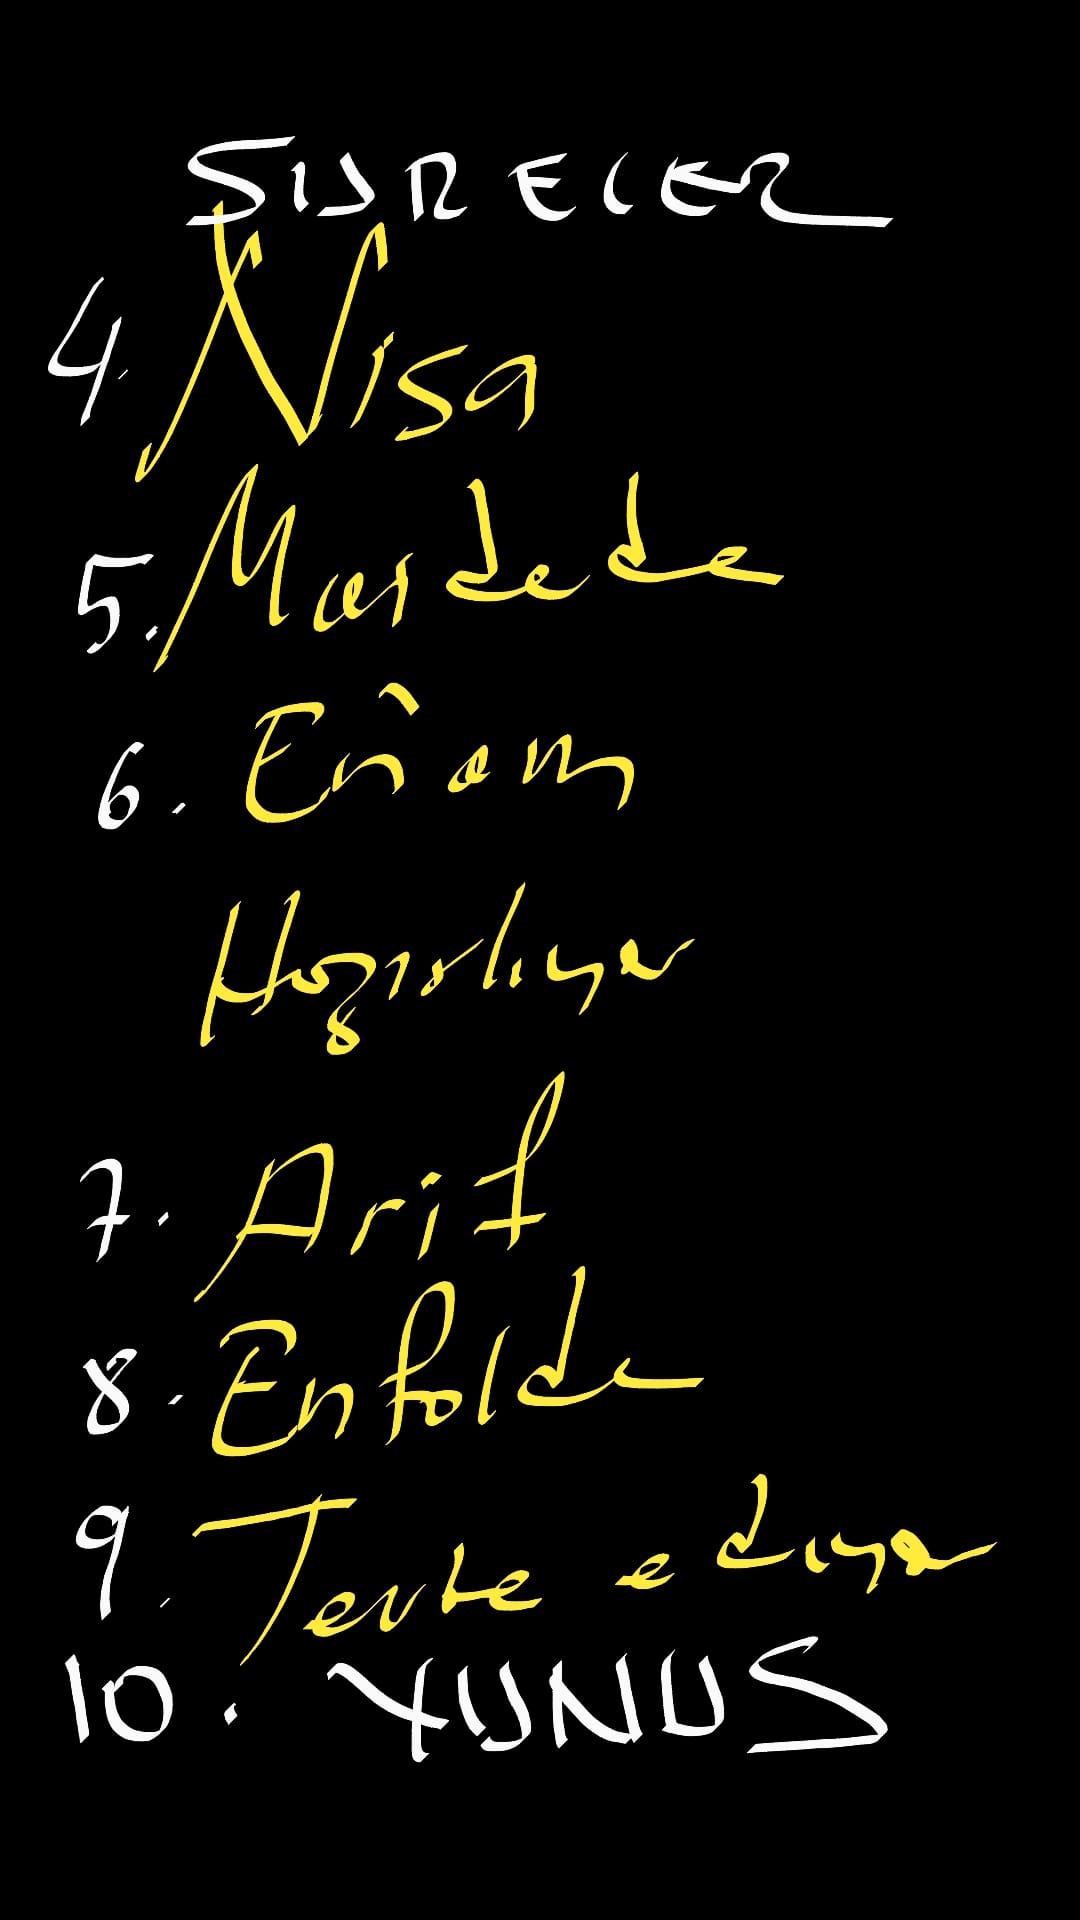 SURELER
4. Nisa
5. Maidede
6. En'am
Hazırlıyor
7. Arif
8. Enfalde
9. Tevbe ediyor
10. YUNUS